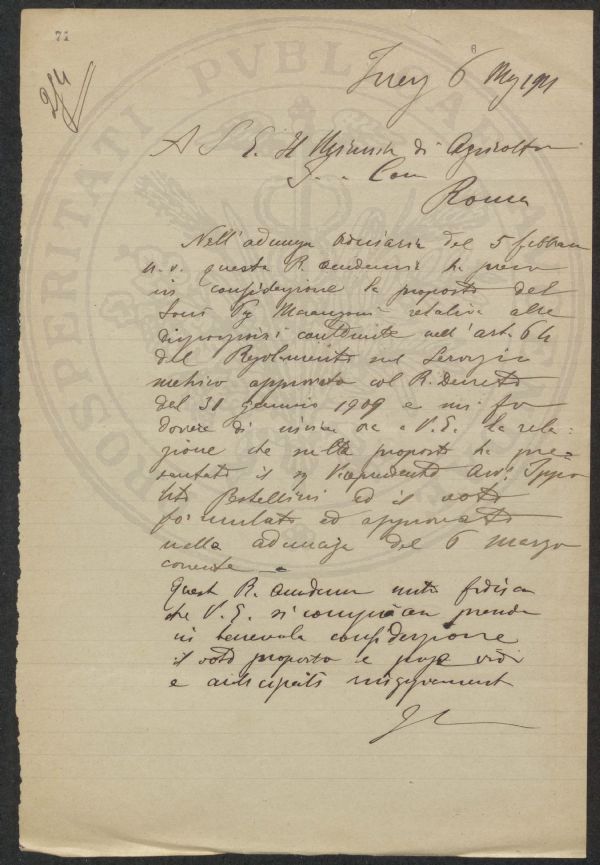 71
6
254
6 Marzo 1911
PROSPERITATI PVBLICAE
A S. E. Il Ministro di Agricoltura
I. e Com
Roma
Nell'adunanza ordinaria del 5 febbraio
u. s. questa R. Accademia ha preso
in considerazione la proposta del
Socio Marangoni relativa alle
disposizioni contenute nell'art. 64
del Regolamento sul Servizio
metrico approvato col R. Decreto
del 31 gennaio 1909 e mi fo
dovere di inviare a V. E. la rela=
zione che sulla proposta ha pre=
sentato il Vicepresidente Avv. Ippo
lito Pestellini ed il voto
formulato ed approvato
nella adunanza del 6 marzo
corrente
Questa R. Accademia fiducia
che V. E. si compiaccia prendere
in benevola considerazione
il voto proposto e
e anticipati ringraziamenti